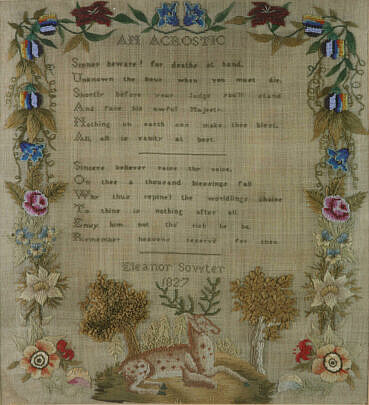 AN ACROSTIC
Sinner beware! for deaths at hand,
Unknown the hour when you must die,
Shortly before your Judge you'll stand
And face his awful Majesty.
Nothing on earth can make thee blest,
Ah, all is vanity at best.
Sincere believer raise thy voice,
On thee a thousand blessings fall
Why thus repine? the worldlings choice
To thine is nothing after all
Envy him not tho' rich he be,
Remember heavens reserv'd for thee.
Eleanor Sowter
1827